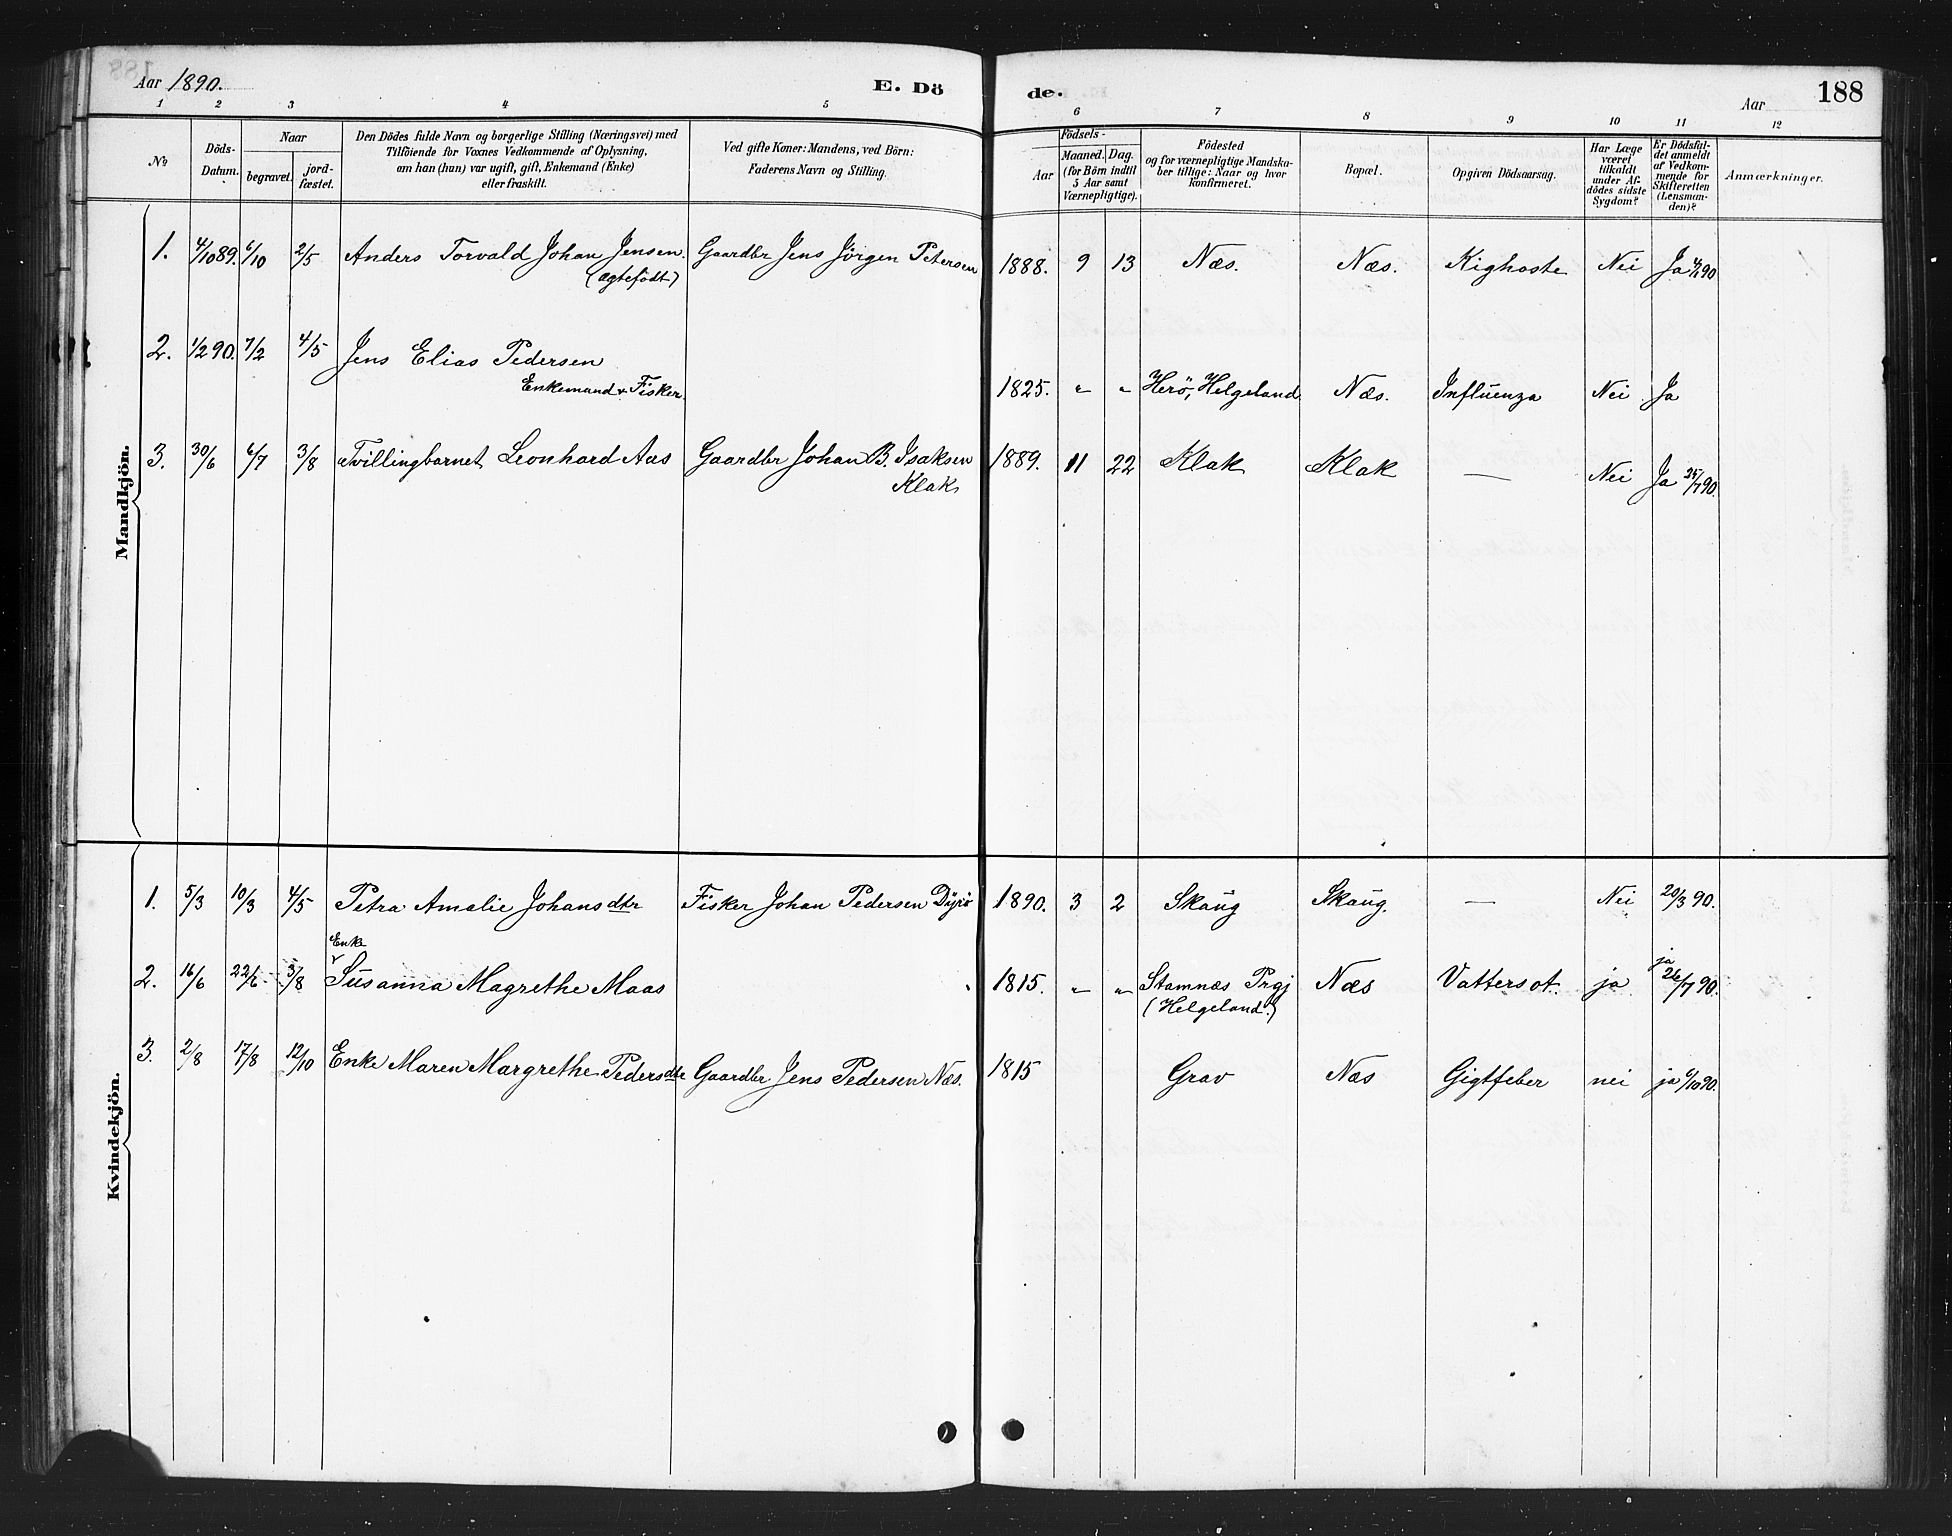 Aar 1890. E. Dö de. Aar 188
1 2 3 4 5 6 7 8 9 10 11 12
No
Döds-
Datum.
Naar
begravet.
jord-
fæstet.
Den Dödes fulde Navn og borgerlige Stilling (Næringsvei) med
Tilföiende for Voxnes Vedkommende af Oplysning,
om han (hun) var ugift, gift, Enkemand (Enke)
eller fraskilt.
Ved gifte Koner: Mandens, ved Börn:
Faderens Navn og Stilling.
Födsels-
Aar
Maaned.
Dag.
(for Börn indtil
5 Aar samt
Værnepligtige).
Födested
og for værnepligtige Mandska-
ber tillige: Naar og hvor
konfirmeret.
Bopæl.
Opgiven Dödsaarsag.
Har Læge
været
tilkaldt
under Af-
dödes sidste
Sygdom?
Er Dödsfal-
det anmeldt
af Vedkom-
mende for
Skifteretten
(Lensman-
den)?
Anmærkninger.
Mandkjön.
1. 4/10 89. 6/10 2/5 Anders Torvald Johan Jensen. Gaardbr Jens Jørgen Petersen 1888. 9 13 Næs. Næs. Kighoste Nei Ja 90
(ægtefödt)
2. 1/2 90. 7/2 4/5 Jens Elias Pedersen
Enkemand v. Fisker. 1825. " " Herö, Helgeland Næs. Influenza Nei Ja
3. 30/6 6/7 3/8 Tvillingbarnet Leonhard Aas Gaardbr Johan B. Isaksen 1889. 11 22 Klak Klak — Nei Ja 25/7 90.
Klak
Kvindekjön.
1. 5/3 10/3 4/5 Petra Amalie Johansdtr Fisker Johan Pedersen Dyrö 1890. 3 2 Skaug Skaug. — Nei 20/3 90.
Enke
2. 16/6 22/6 3/8 Susanna Magrethe Maas 1815. " " Stamnæs Prgj Næs Vattersot. ja ja 26/7 90.
(Helgeland.)
3. 2/8 17/8 12/10 Enke Maren Margrethe Pedersdtr Gaardbr Jens Pedersen Næs. 1815 Grav Næs Gigtfeber nei ja 6/10 90.